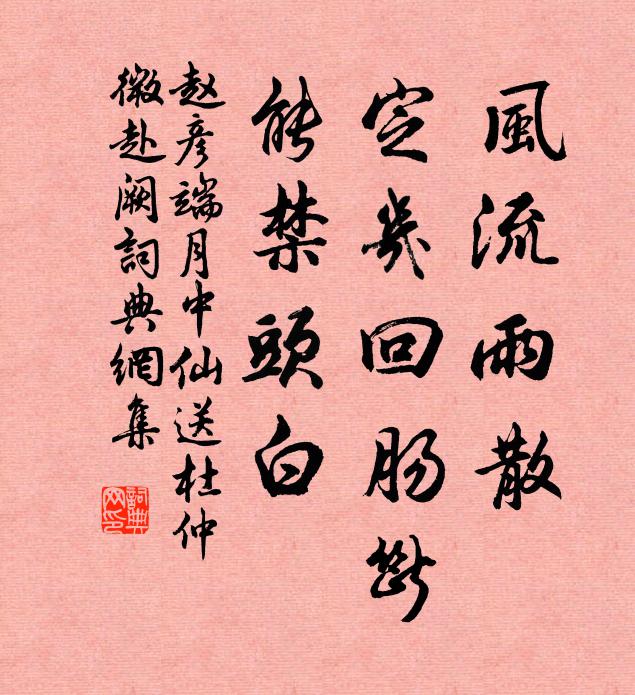 風流雨散
定幾回肠斷
能禁頭白
赵彦端月中仙送杜仲
微赴阙詞典網集
詞典
网印